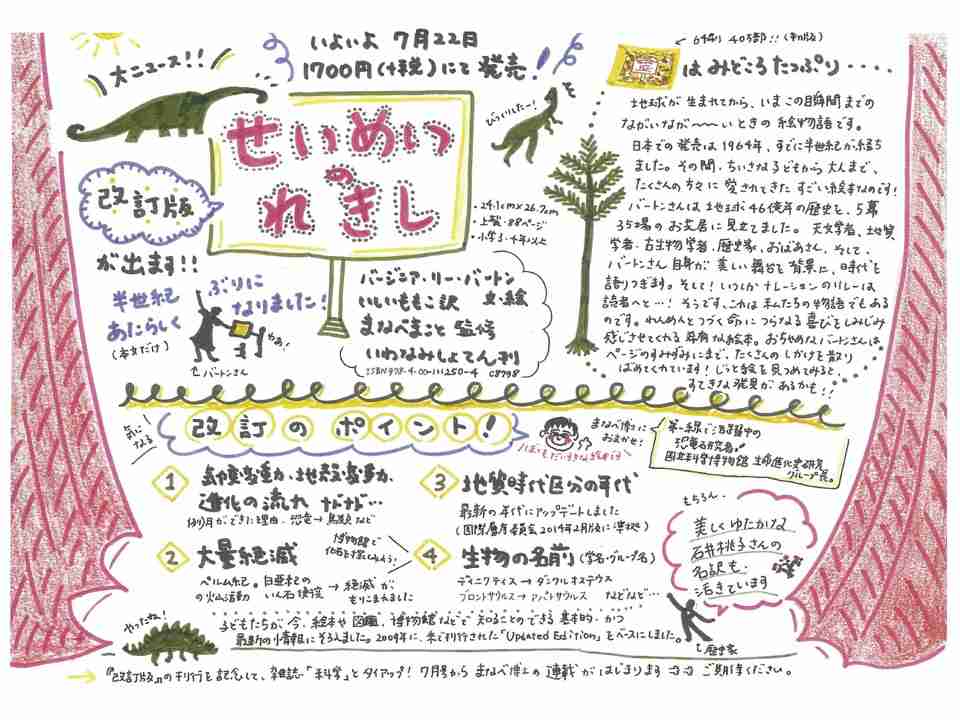 大ニュース!!
いよいよ 7月22日
1700円(+税)にて発売!
せいめい
の
れきし
改訂版
が出ます!!
半世紀
ぶりに
あたらしく
なりました!
(本文だけ)
やあ!
バートンさん
びっくりしたー!
・24.1cm×26.7cm
・上製・88ページ
・小学3・4年以上
バージニア・リー・バートン
文・絵
いしいももこ 訳
まなべまこと 監修
いわなみしょてん 刊
ISBN 978-4-00-111250-4 C8798
64刷り 40.3万部!!(初版)
はみどころたっぷり・・・・
地球が生まれてから、いまこの瞬間までの
ながいなが〜〜いときの絵物語です。
日本での発売は1964年、すでに半世紀が経ち
ました。その間、ちいさな子どもから大人まで、
たくさんの方々に愛されてきたすごい絵本なのです!
バートンさんは地球46億年の歴史を、5幕
35場のお芝居に見立てました。天文学者、地質
学者・古生物学者、歴史家、おばあさん、そして、
バートンさん自身が美しい舞台を背景に、時代を
語りつぎます。そして!いつしかナレーションのリレーは
読者へと…!そうです、これは私たちの物語でもある
のです。れんめんとつづく命につらなる喜びをしみじみ
感じさせてくれる稀有な絵本。おちゃめなバートンさんは
ページのすみずみにまで、たくさんのしかけを散り
ばめてくれています!じっと絵を見つめてみると、
すてきな発見があるかも!!
気になる
改訂のポイント!
まなべ博士に
おまかせ!
第一線で活躍中の
恐竜研究者!
国立科学博物館 生命進化史研究
グループ長。
1 気候変動、地殻変動、
進化の流れ などなど…
例)月ができた理由・恐竜→鳥類など
2 大量絶滅
ペルム紀・白亜紀の
の火山活動
いん石衝突
→絶滅が
もりこまれました
博物館で
化石を探してみよう!
3 地質時代区分の年代
最新の年代にアップデートしました
(国際層序委員会2014年2月版に準拠)
4 生物の名前(学名・グループ名)
ディニクティス→ダンクルオステウス
ブロントサウルス→アパトサウルス などなど…
もちろん、
美しくゆたかな
石井桃子さんの
名訳も
活きています
歴史家
やったね!
子どもたちが、今、絵本や図鑑、博物館などで知ることのできる基本的かつ
最新の情報にそろえました。2009年に、米で刊行された「Updated Edition」をベースにしました。
→『改訂版』の刊行を記念して、雑誌「科学」とタイアップ!7月号からまなべ博士の連載がはじまります ご期待ください。